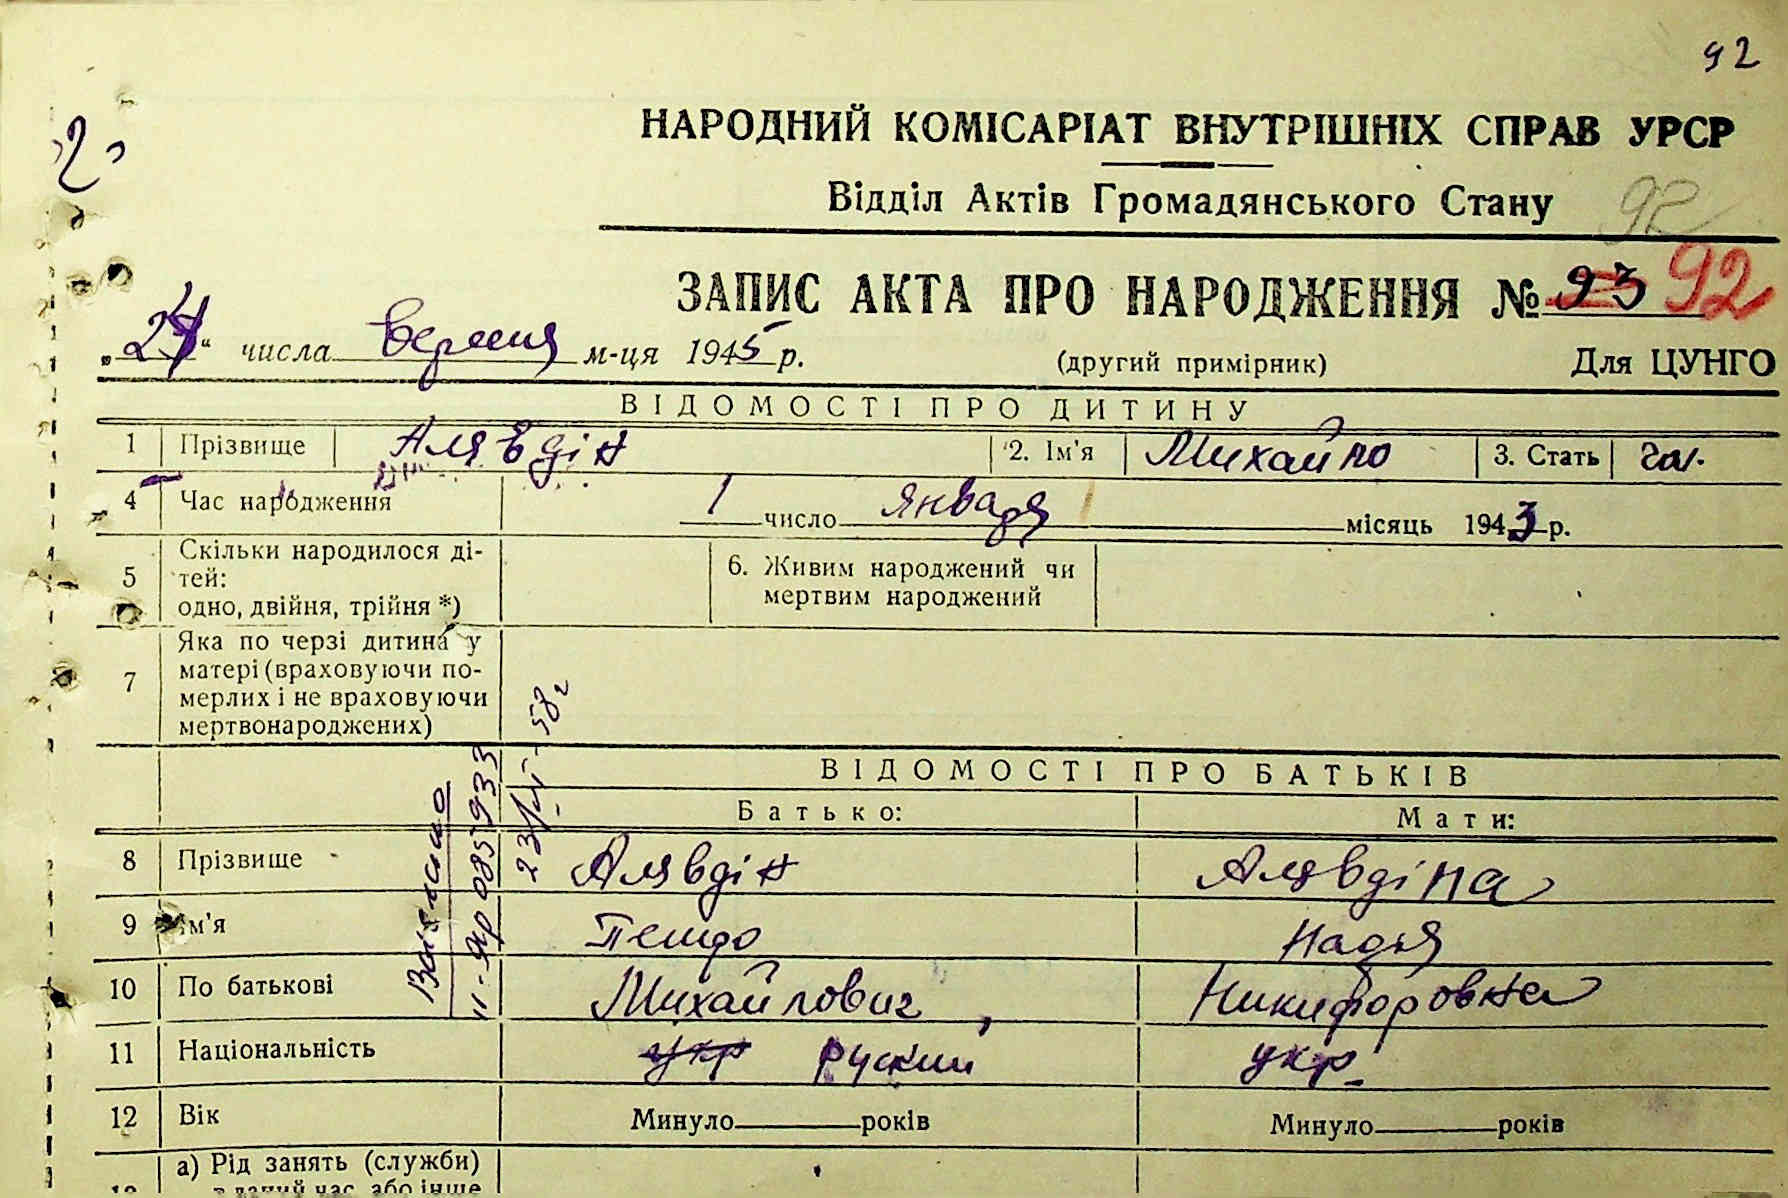 92
НАРОДНИЙ КОМІСАРІАТ ВНУТРІШНІХ СПРАВ УРСР
Відділ Актів Громадянського Стану 92
ЗАПИС АКТА ПРО НАРОДЖЕННЯ № 93 92
„24“ числа вересня м-ця 1945 р. (другий примірник) Для ЦУНГО
ВІДОМОСТІ ПРО ДИТИНУ
1 Прізвище Алявдін 2. Ім'я Михайло 3. Стать чол.
4 Час народження 1 число января місяць 1943 р.
5 Скільки народилося ді-
тей:
одно, двійня, трійня *)
6. Живим народжений чи
мертвим народжений
7 Яка по черзі дитина у
матері (враховуючи по-
мерлих і не враховуючи
мертвонароджених)
ВІДОМОСТІ ПРО БАТЬКІВ
Батько: Мати:
8 Прізвище Алявдін Алявдіна
9 Ім'я Петро Надя
10 По батькові Михайлович Никифоровна
11 Національність укр руский укр.
12 Вік Минуло років Минуло років
а) Рід занять (служби)
в даний час або інше
II-ЯР 085933
58 г